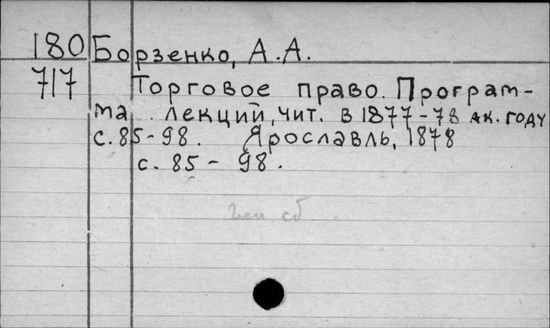 180 Борзенко, А.А.
717 Торговое право. Програм-
ма лекций, чит. в 1877-78 ак. году
с. 85-98. Ярославль, 1878
с. 85 - 98.